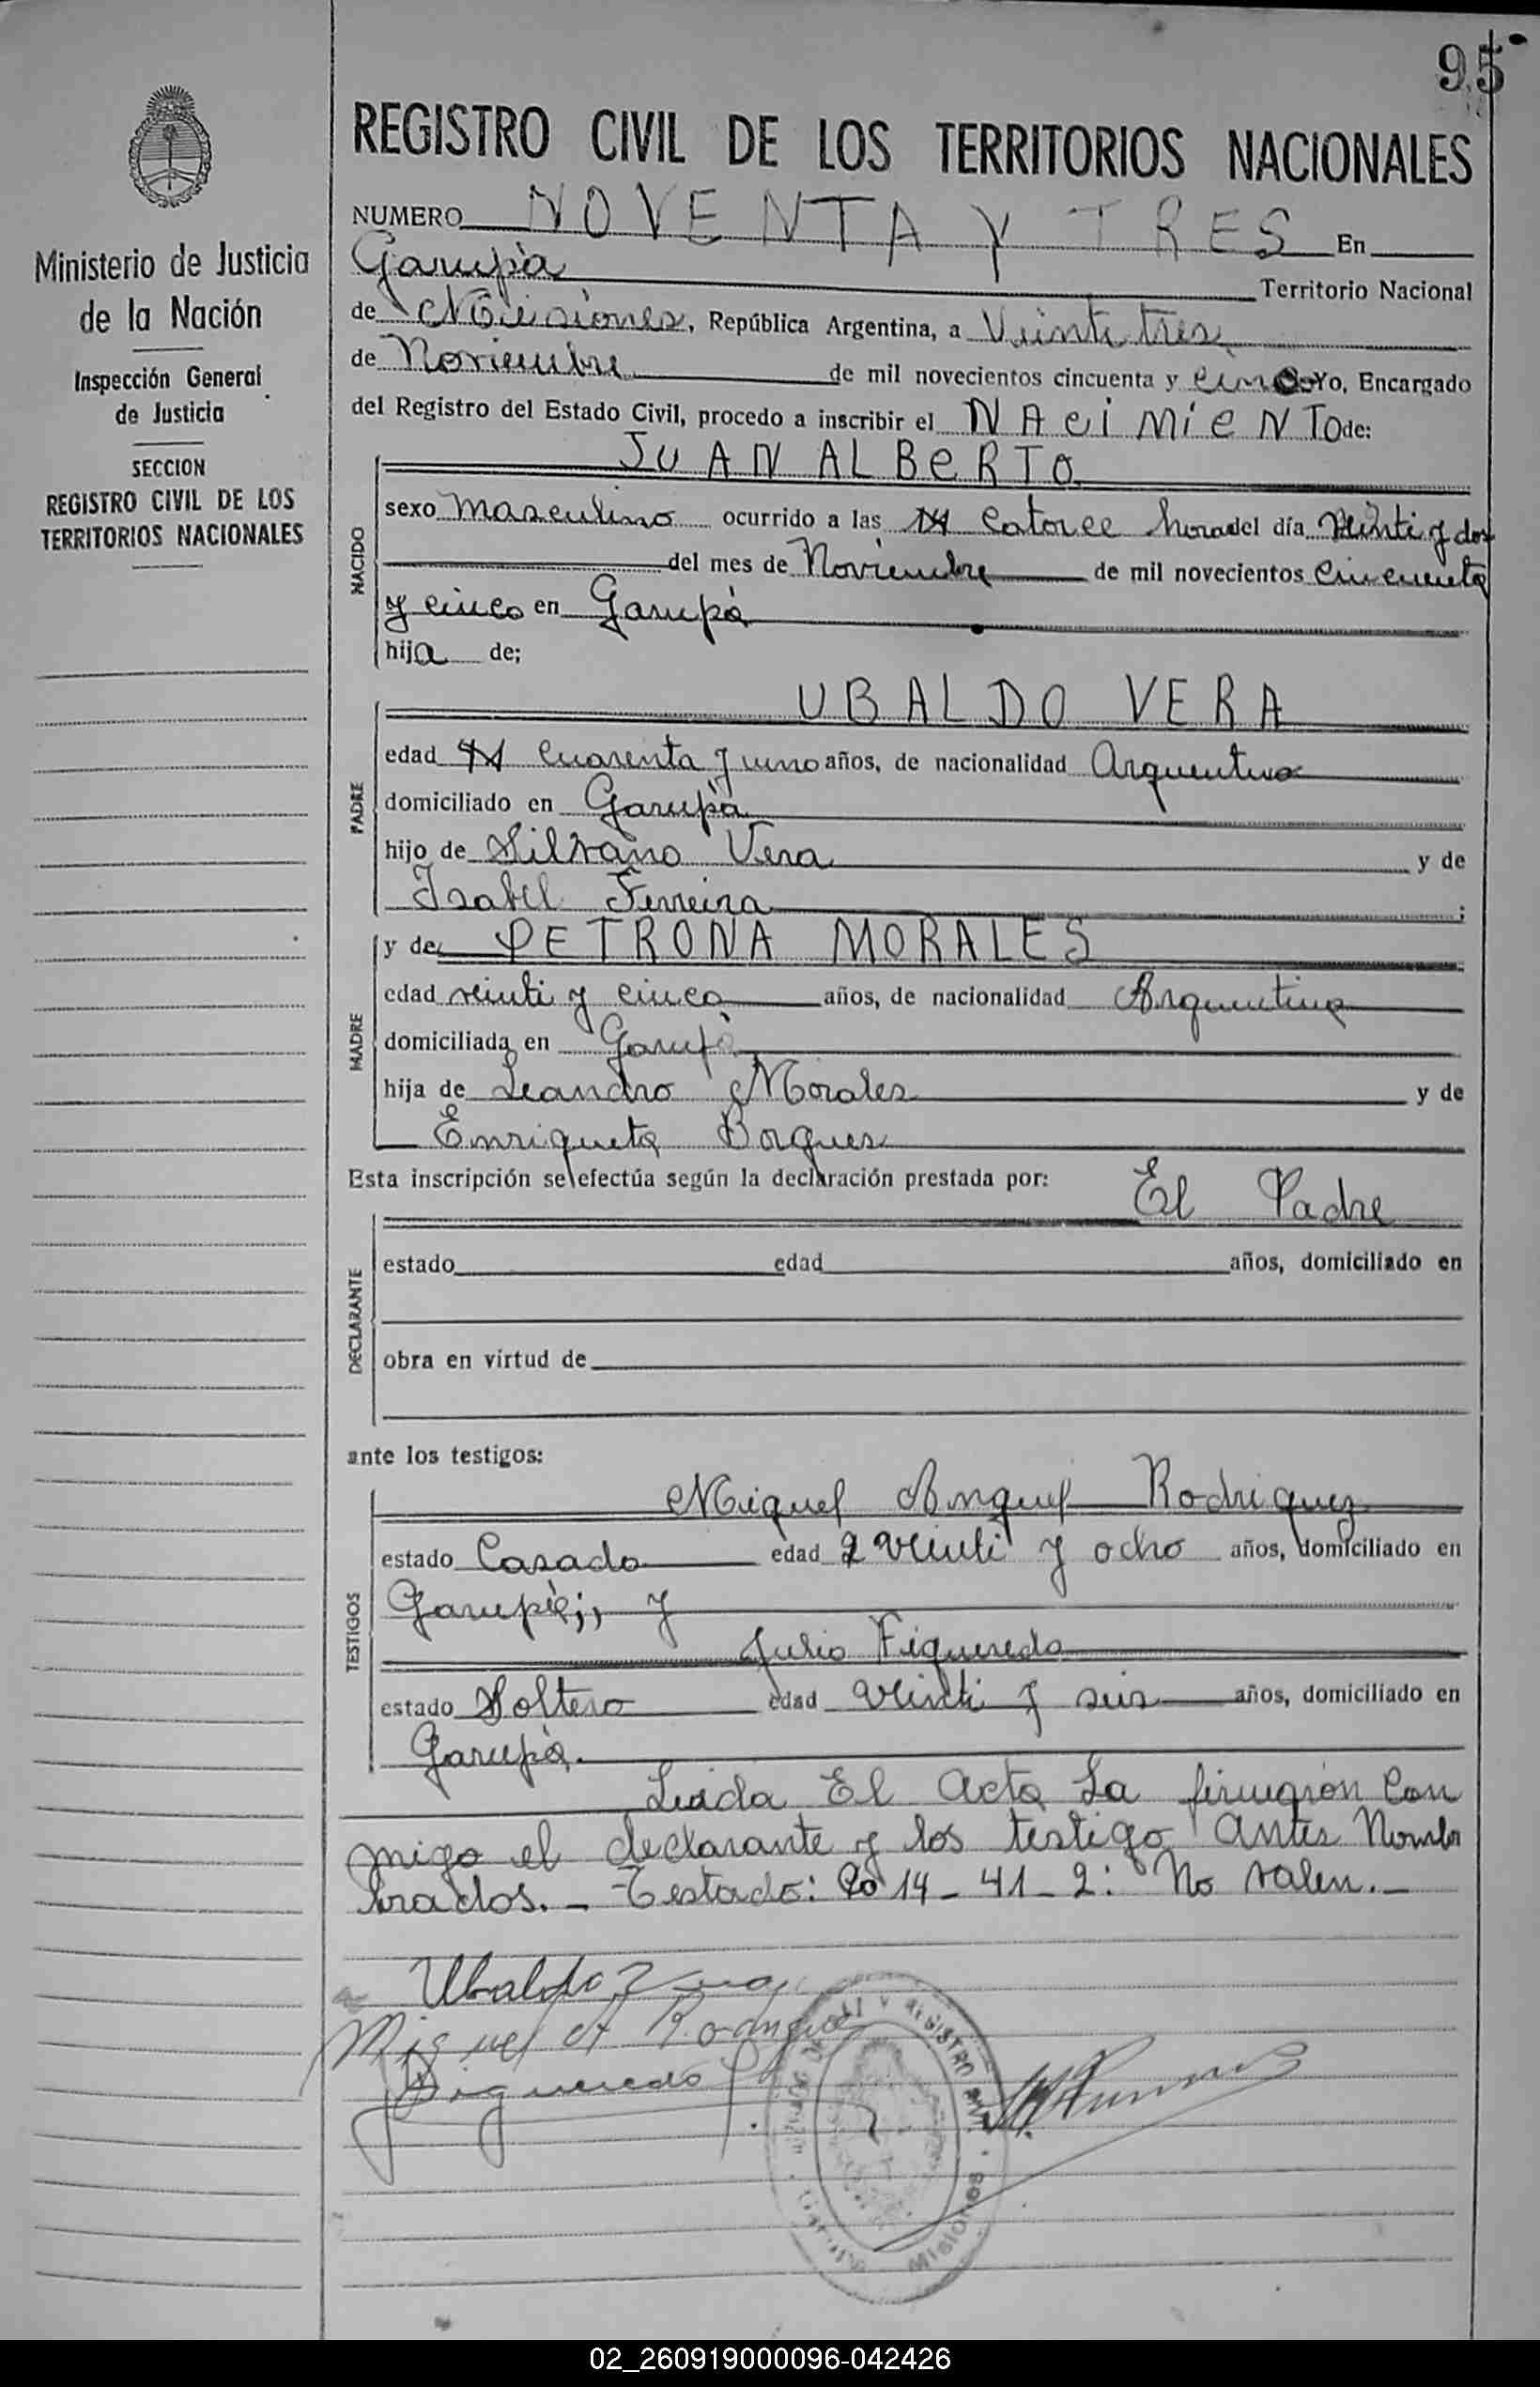 95
Ministerio de Justicia
de la Nación
Inspección General
de Justicia
SECCION
REGISTRO CIVIL DE LOS
TERRITORIOS NACIONALES
REGISTRO CIVIL DE LOS TERRITORIOS NACIONALES
NUMERO NOVENTA Y TRES En
Garupà Territorio Nacional
de Misiones, República Argentina, a Veintitres
de Noviembre de mil novecientos cincuenta y cinco Yo, Encargado
del Registro del Estado Civil, procedo a inscribir el NACiMieNTO de:
JUAN ALBeRTO
NACIDO
sexo masculino ocurrido a las 14 Catorce horas del día Veinti y dos
del mes de Noviembre de mil novecientos Cincuenta
y cinco en Garupà
hija de;
UBALDO VERA
PADRE
edad 41 Cuarenta y uno años, de nacionalidad Argentino
domiciliado en Garupà
hijo de Silvano Vera y de
Isabel Ferreira ;
y de PETRONA MORALES
MADRE
edad veinti y cinco años, de nacionalidad Argentina
domiciliada en Garupà
hija de Leandro Morales y de
Enriqueta Borques
Esta inscripción se efectúa según la declaración prestada por: El Padre
DECLARANTE
estado edad años, domiciliado en
obra en virtud de
ante los testigos:
Miguel Anguel Rodriguez
TESTIGOS
estado Casado edad 2 veinti y ocho años, domiciliado en
Garupà;, y
Julio Figueredo
estado Soltero edad veinti y seis años, domiciliado en
Garupà.
Leida El Acta La firmarón Con
migo el declarante y los testigo Antes Nomb
brados. - Testado: 20 14 - 41 - 2: No valen. -
Ubaldo Vera
Miguel A Rodriguez
Figueredo
REGISTRO
MISIONES
02_260919000096-042426